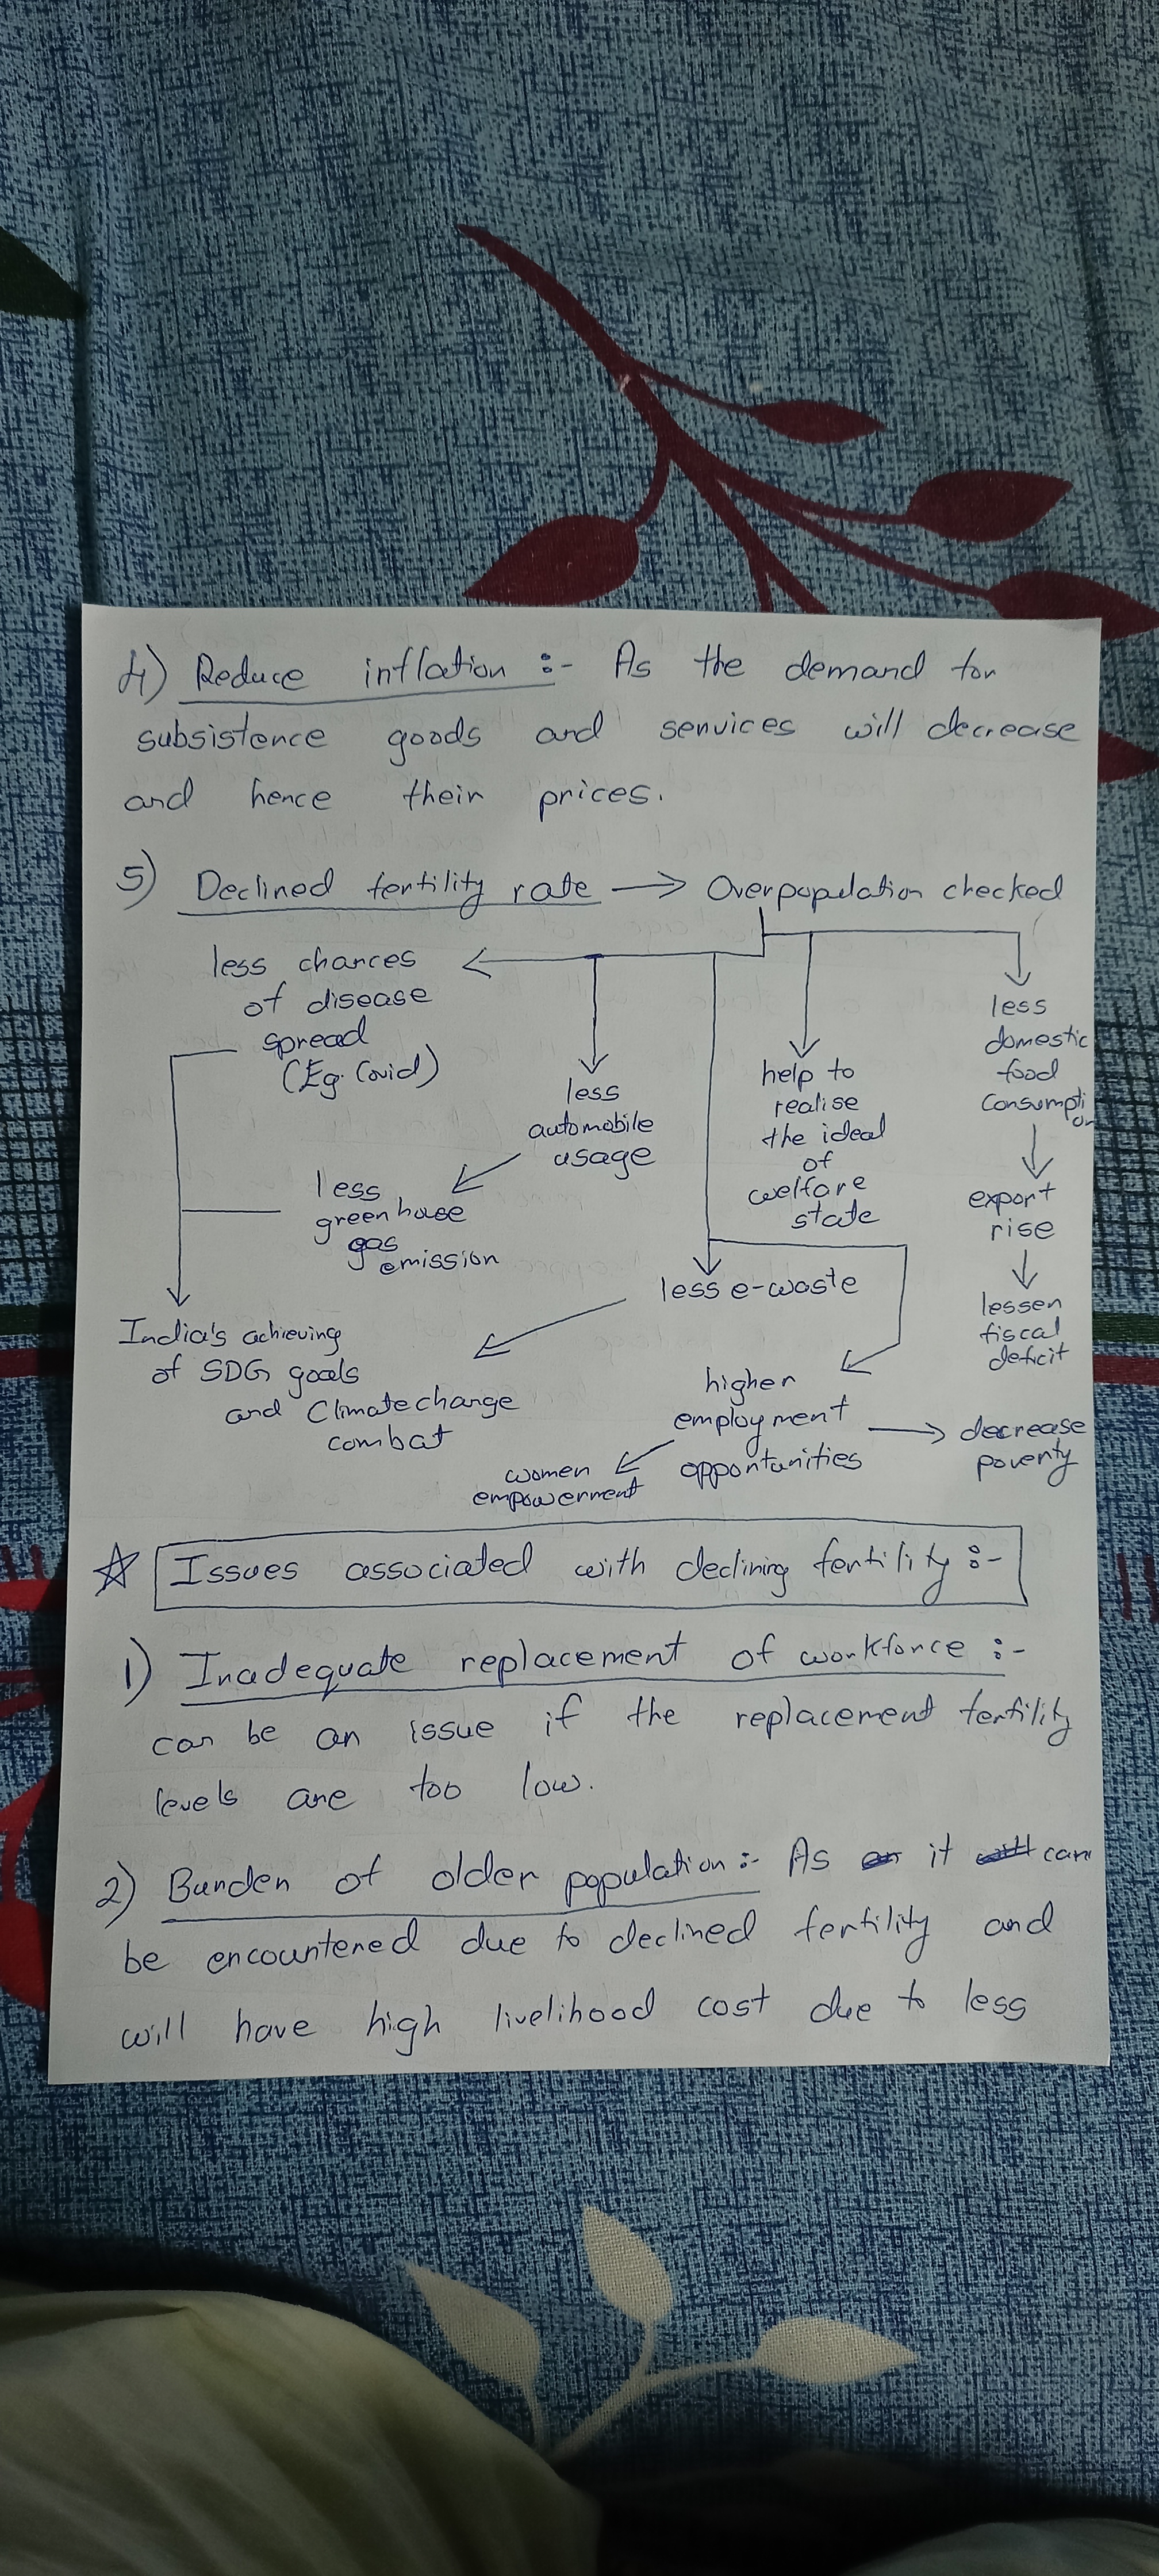 4) Reduce inflation :- As the demand for
subsistence goods and services will decrease
and hence their prices.
5) Declined fertility rate → Overpopulation checked
less chances
of disease
spread
(Eg. Covid)
less
automobile
usage
less
greenhouse
gas
emission
help to
realise
the ideal
of
welfare
state
less
domestic
food
consumpti
on
export
rise
lessen
fiscal
deficit
less e-waste
India's achieving
of SDG goals
and Climate change
combat
higher
employment
opportunities
decrease
poverty
women
empowerment
☆ Issues associated with declining fertility :-
1) Inadequate replacement of workforce :-
can be an issue if the replacement fertility
levels are too low.
2) Burden of older population :- As it can
be encountered due to declined fertility and
will have high livelihood cost due to less